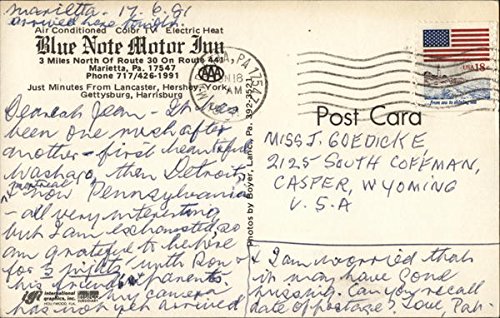 Marietta - 17.6.81
arrived here tonight.
Air Conditioned Color TV Electric Heat
Blue Note Motor Inn
3 Miles North Of Route 30 On Route 441
Marietta, Pa. 17547
Phone 717/426-1991
AAA
Just Minutes From Lancaster, Hershey, York,
Gettysburg, Harrisburg
Dearest Jean - It has
been one rush after
another - first beautiful
Washago, then Detroit,
Montreal
& now Pennsylvania
- all very interesting
but I am exhausted, so
am grateful to be here
for 3 nights with Ron &
his friend's parents.
My camera
has not yet arrived
igi international graphics, inc.
HOLLYWOOD, FLA.
Photos by Boyer, Lanc., Pa. 392-2521
PA 17547
JUN 18
AM
USA 18c
from sea to shining sea
Post Card
MISS J. GOEDICKE,
2125 SOUTH COFFMAN,
CASPER, WYOMING
U.S.A
& I am worried that
it may have gone
missing. Can you recall
date of postage? Love, Pat.